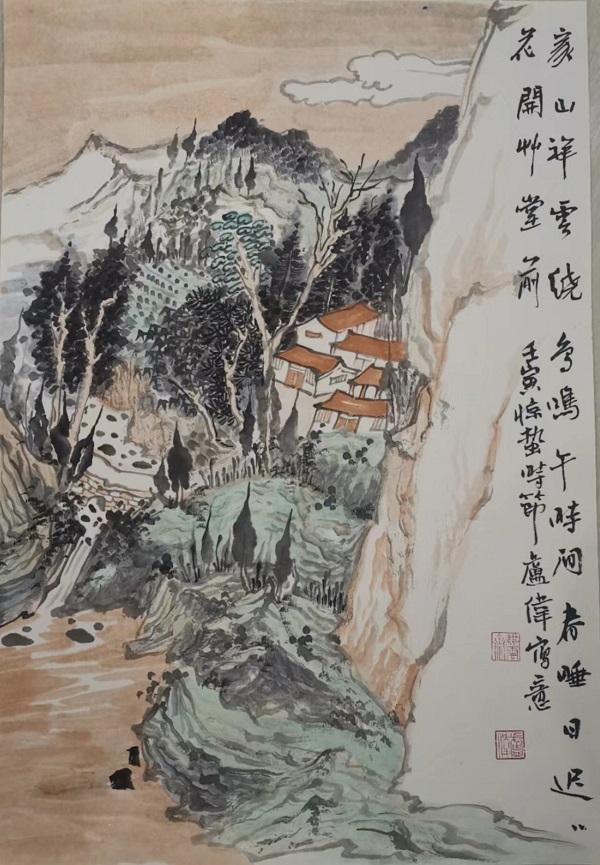 家山祥雲绕鸟鳴午時间春睡日迟迟
花開艸堂前
壬寅惊蛰時節盧偉寫意